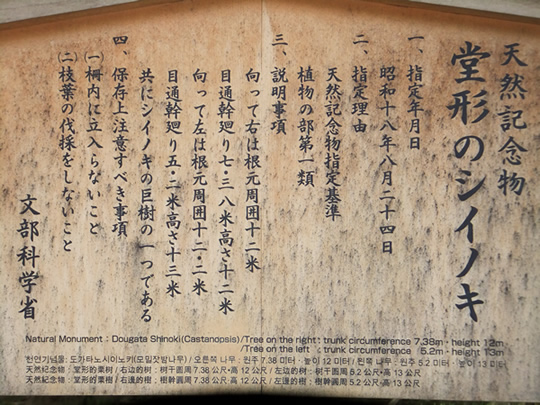 天然記念物
堂形のシイノキ
一、指定年月日
昭和十八年八月二十四日
二、指定理由
天然記念物指定基準
植物の部第一類
三、説明事項
向って右は根元周囲十二米
目通幹廻り七・三八米高さ十二米
向って左は根元周囲十二・二米
目通幹廻り五・二米高さ十三米
共にシイノキの巨樹の一つである
四、保存上注意すべき事項
㈠柵内に立入らないこと
㈡枝葉の伐採をしないこと
文部科学省
Natural Monument : Dougata Shinoki(Castanopsis)/Tree on the right : trunk circumference 7.38m・height 12m
/Tree on the left : trunk circumference 5.2m・height 13m
천연기념물: 도가타노시이노키(모밀잣밤나무) / 오른쪽 나무 : 원주 7.38 미터・높이 12 미터 / 왼쪽 나무 : 원주 5.2 미터・높이 13 미터
天然纪念物 : 堂形的栗树 / 右边的树 : 树干圆周 7.38 公尺・高 12 公尺 / 左边的树 : 树干圆周 5.2 公尺・高 13 公尺
天然紀念物 : 堂形的栗樹 / 右邊的樹 : 樹幹圓周 7.38 公尺・高 12 公尺 / 左邊的樹 : 樹幹圓周 5.2 公尺・高 13 公尺